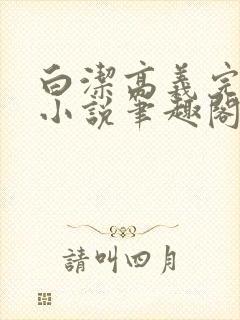 白潔高義完
小説筆趣閣
請叫四月